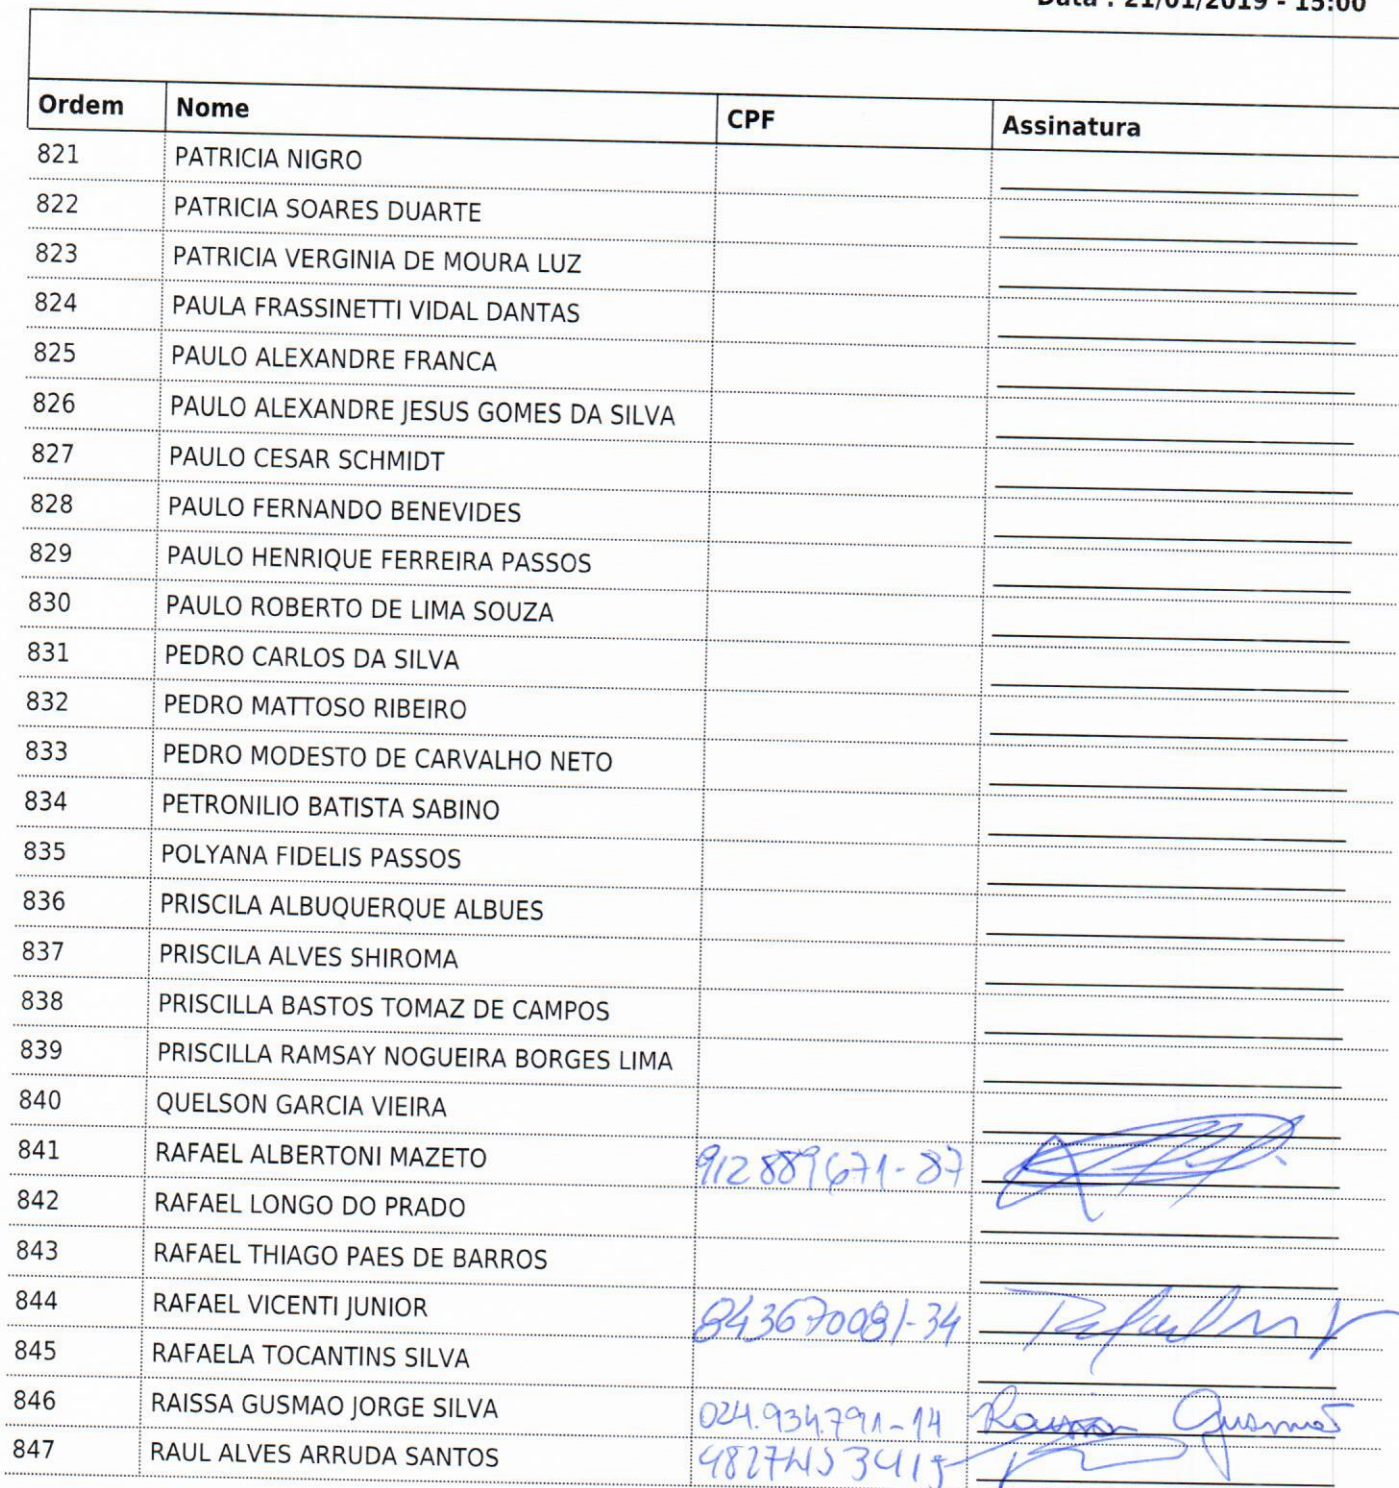 Data : 21/01/2019 - 15:00
Ordem Nome CPF Assinatura
821 PATRICIA NIGRO
822 PATRICIA SOARES DUARTE
823 PATRICIA VERGINIA DE MOURA LUZ
824 PAULA FRASSINETTI VIDAL DANTAS
825 PAULO ALEXANDRE FRANCA
826 PAULO ALEXANDRE JESUS GOMES DA SILVA
827 PAULO CESAR SCHMIDT
828 PAULO FERNANDO BENEVIDES
829 PAULO HENRIQUE FERREIRA PASSOS
830 PAULO ROBERTO DE LIMA SOUZA
831 PEDRO CARLOS DA SILVA
832 PEDRO MATTOSO RIBEIRO
833 PEDRO MODESTO DE CARVALHO NETO
834 PETRONILIO BATISTA SABINO
835 POLYANA FIDELIS PASSOS
836 PRISCILA ALBUQUERQUE ALBUES
837 PRISCILA ALVES SHIROMA
838 PRISCILLA BASTOS TOMAZ DE CAMPOS
839 PRISCILLA RAMSAY NOGUEIRA BORGES LIMA
840 QUELSON GARCIA VIEIRA
841 RAFAEL ALBERTONI MAZETO 912889671-87
842 RAFAEL LONGO DO PRADO
843 RAFAEL THIAGO PAES DE BARROS
844 RAFAEL VICENTI JUNIOR 843670081-34 Rafael
845 RAFAELA TOCANTINS SILVA
846 RAISSA GUSMAO JORGE SILVA 024.934.791-14 Raissa Gusmão
847 RAUL ALVES ARRUDA SANTOS